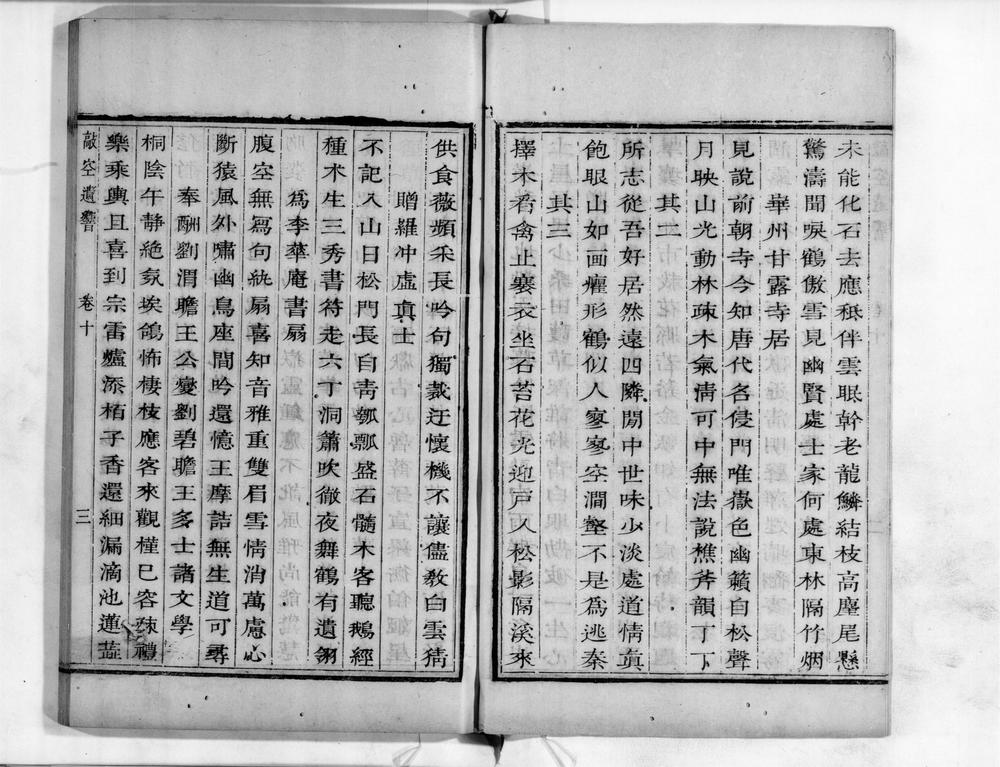 未能化石去應秪伴雲眠幹老龍鱗結枝高麈尾懸
驚濤聞唳鶴傲雪見幽賢處士家何處東林隔竹烟
華州甘露寺居
見說前朝寺今知唐代各侵門唯嶽色幽籟自松聲
月映山光動林疎木氣清可中無法說樵斧韻丁丁
其二
所志從吾好居然遠四隣閒中世味少淡處道情眞
飽眼山如畫癯形鶴似人寥寥空澗壑不是爲逃秦
其三
擇木看禽止褰衣坐石苔花光迎戸入松影隔溪來
供食薇頻采長吟句獨裁迂懷機不讓儘敎白雲猜
贈羅冲虛眞士
不記入山日松門長自靑瓠瓢盛石髓木客聽鵝經
種术生三秀書符走六丁洞簫吹徹夜舞鶴有遺翎
爲李華庵書扇
腹空無寫句紈扇喜知音雅重雙眉雪情消萬慮心
斷猿風外嘯幽鳥座間吟還憶王摩詰無生道可尋
奉酬劉渭瞻王公夔劉碧瞻王多士諸文學
桐陰午靜絶氛埃鴿怖棲枝應客來觀槿巳容疎禮
樂乘輿且喜到宗雷爐添栢子香還細漏滴池蓮蕋
敲空遺響 卷十 三